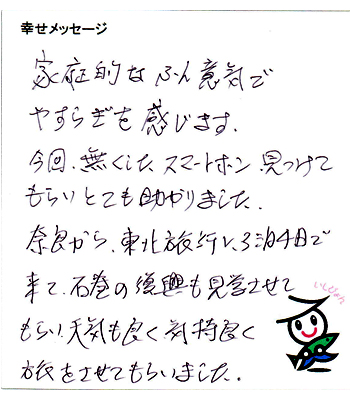 幸せメッセージ
家庭的なふん意気で
やすらぎを感じます.
今回、無くしたスマートホン、見つけて
もらいとても助かりました.
奈良から、東北旅行し、3泊4日で
来て、石巻の復興も見学させて
もらい、天気も良く、気持良く
旅をさせてもらいました.
いしぴょん